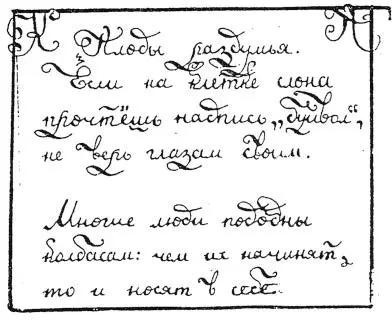 Плоды раздумья.
Если на клетке слона
прочтёшь надпись „буйвол“,
не верь глазам своим.
Многие люди подобны
колбасам: чем их начинят,
то и носят в себе.